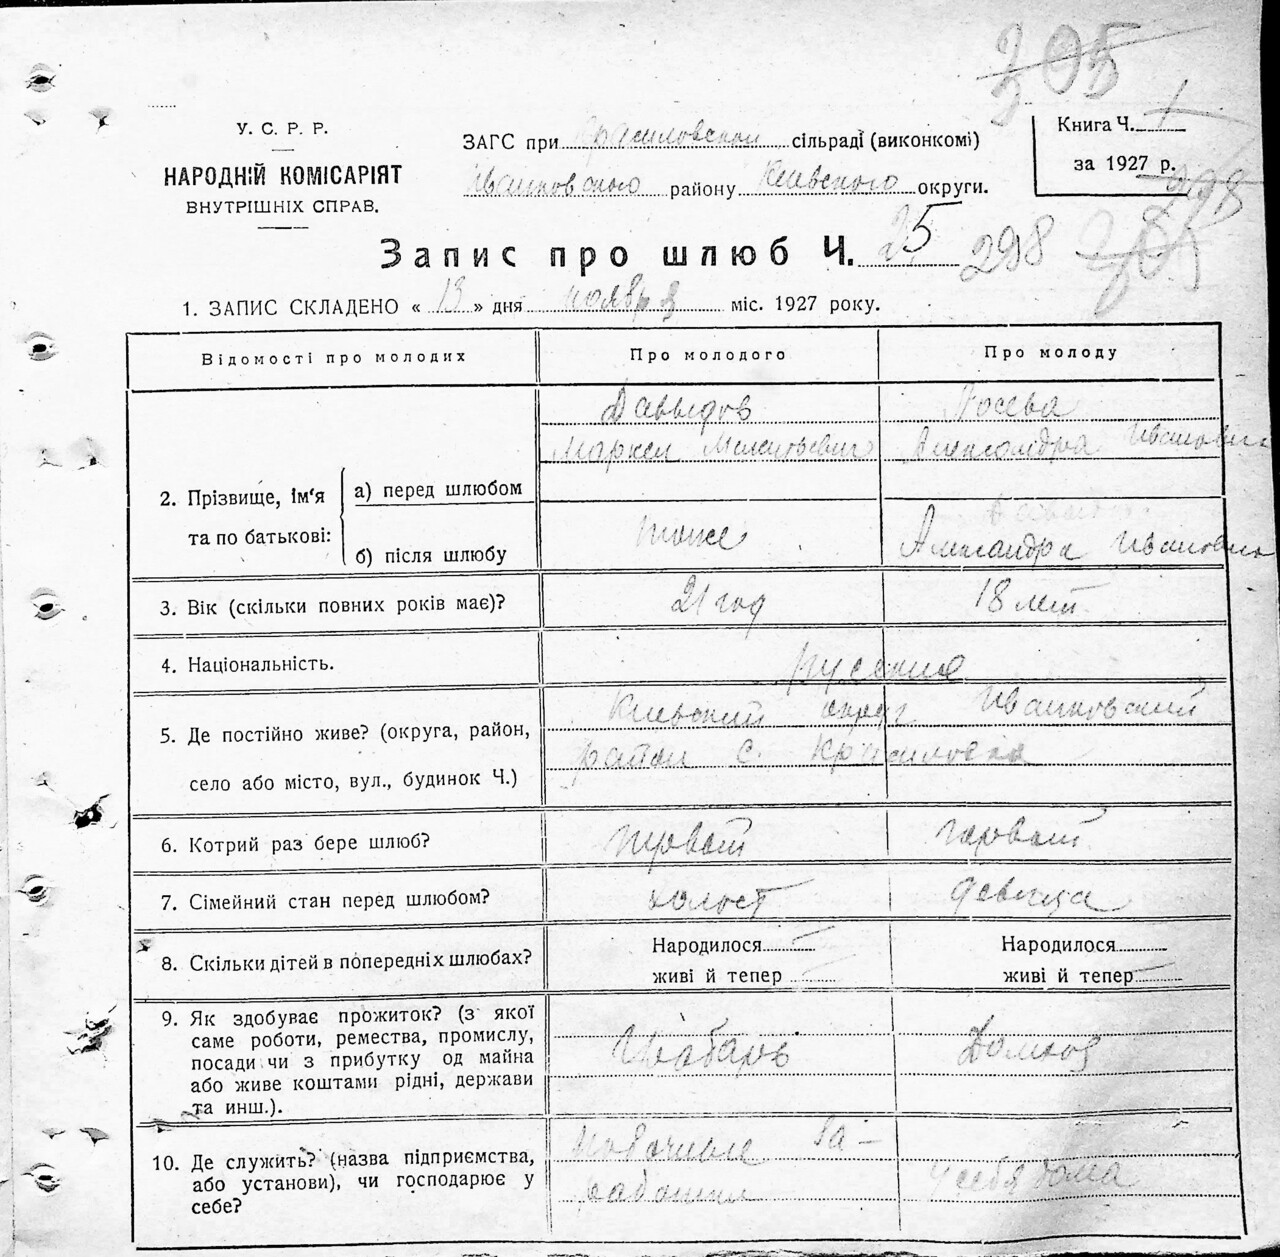 395
У. С. Р. Р.
НАРОДНІЙ КОМІСАРІЯТ
ВНУТРІШНІХ СПРАВ.
ЗАГС при Красиловской сільраді (виконкомі)
Иванковского району Киевского округи.
Книга Ч. 1
за 1927 р.
298
Запис про шлюб Ч. 25 298
1. ЗАПИС СКЛАДЕНО « 13 » дня ноября міс. 1927 року.
Відомості про молодих
Про молодого
Про молоду
Давыдов
Маркел
Лосева
Александра Ивановна
2. Прізвище, ім'я та по батькові:
а) перед шлюбом
б) після шлюбу
тоже
Александра Ивановна
3. Вік (скільки повних років має)?
21 год
18 лет
4. Національність.
русские
5. Де постійно живе? (округа, район,
село або місто, вул., будинок Ч.)
Киевский округ Иванковский
район с. Красиловка
6. Котрий раз бере шлюб?
первый
первый
7. Сімейний стан перед шлюбом?
холост
девица
8. Скільки дітей в попередніх шлюбах?
Народилося
живі й тепер
Народилося
живі й тепер
9. Як здобуває прожиток? (з якої
саме роботи, ремества, промислу,
посади чи з прибутку од майна
або живе коштами рідні, держави
та инш.).
10. Де служить? (назва підприємства,
або установи), чи господарює у
себе?
у себя дома